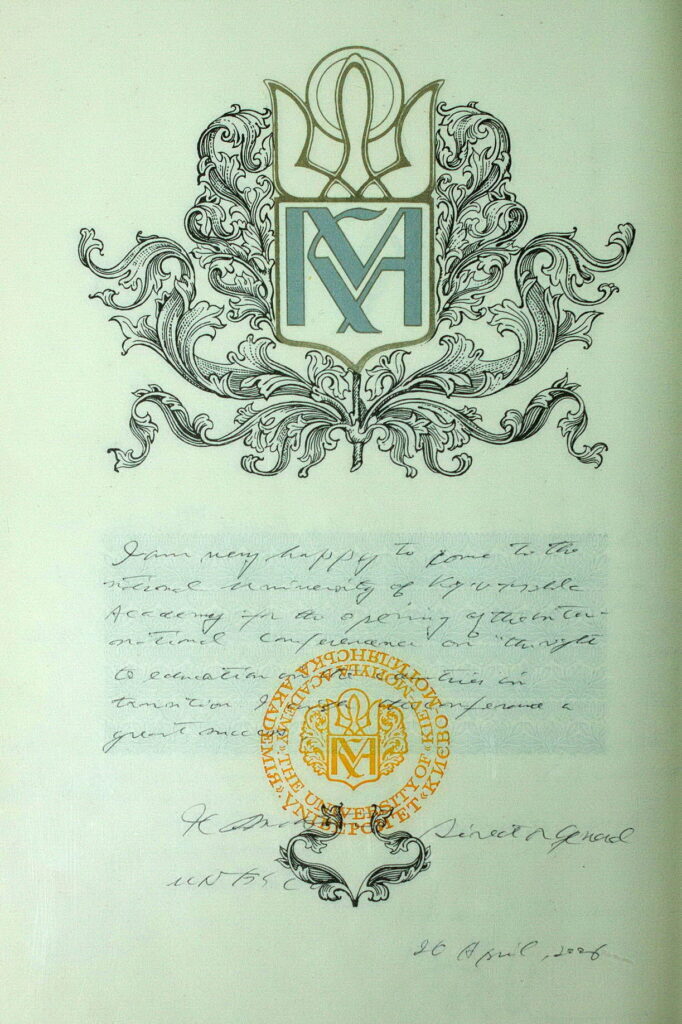 КМА
I am very happy to come to the
national University of Kyiv Mohyla
Academy for the opening of the inter-
national conference on "the right
to education countries in
transition I wish this conference a
great success
Director General
UNESCO
20 April, 2006
VНІВЕРСИТЕТ «КИЄВО-МОГИЛЯНСЬКА АКАДЕМІЯ»
THE UNIVERSITY OF «KIEV-MOHYLA ACADEMY»
КМА